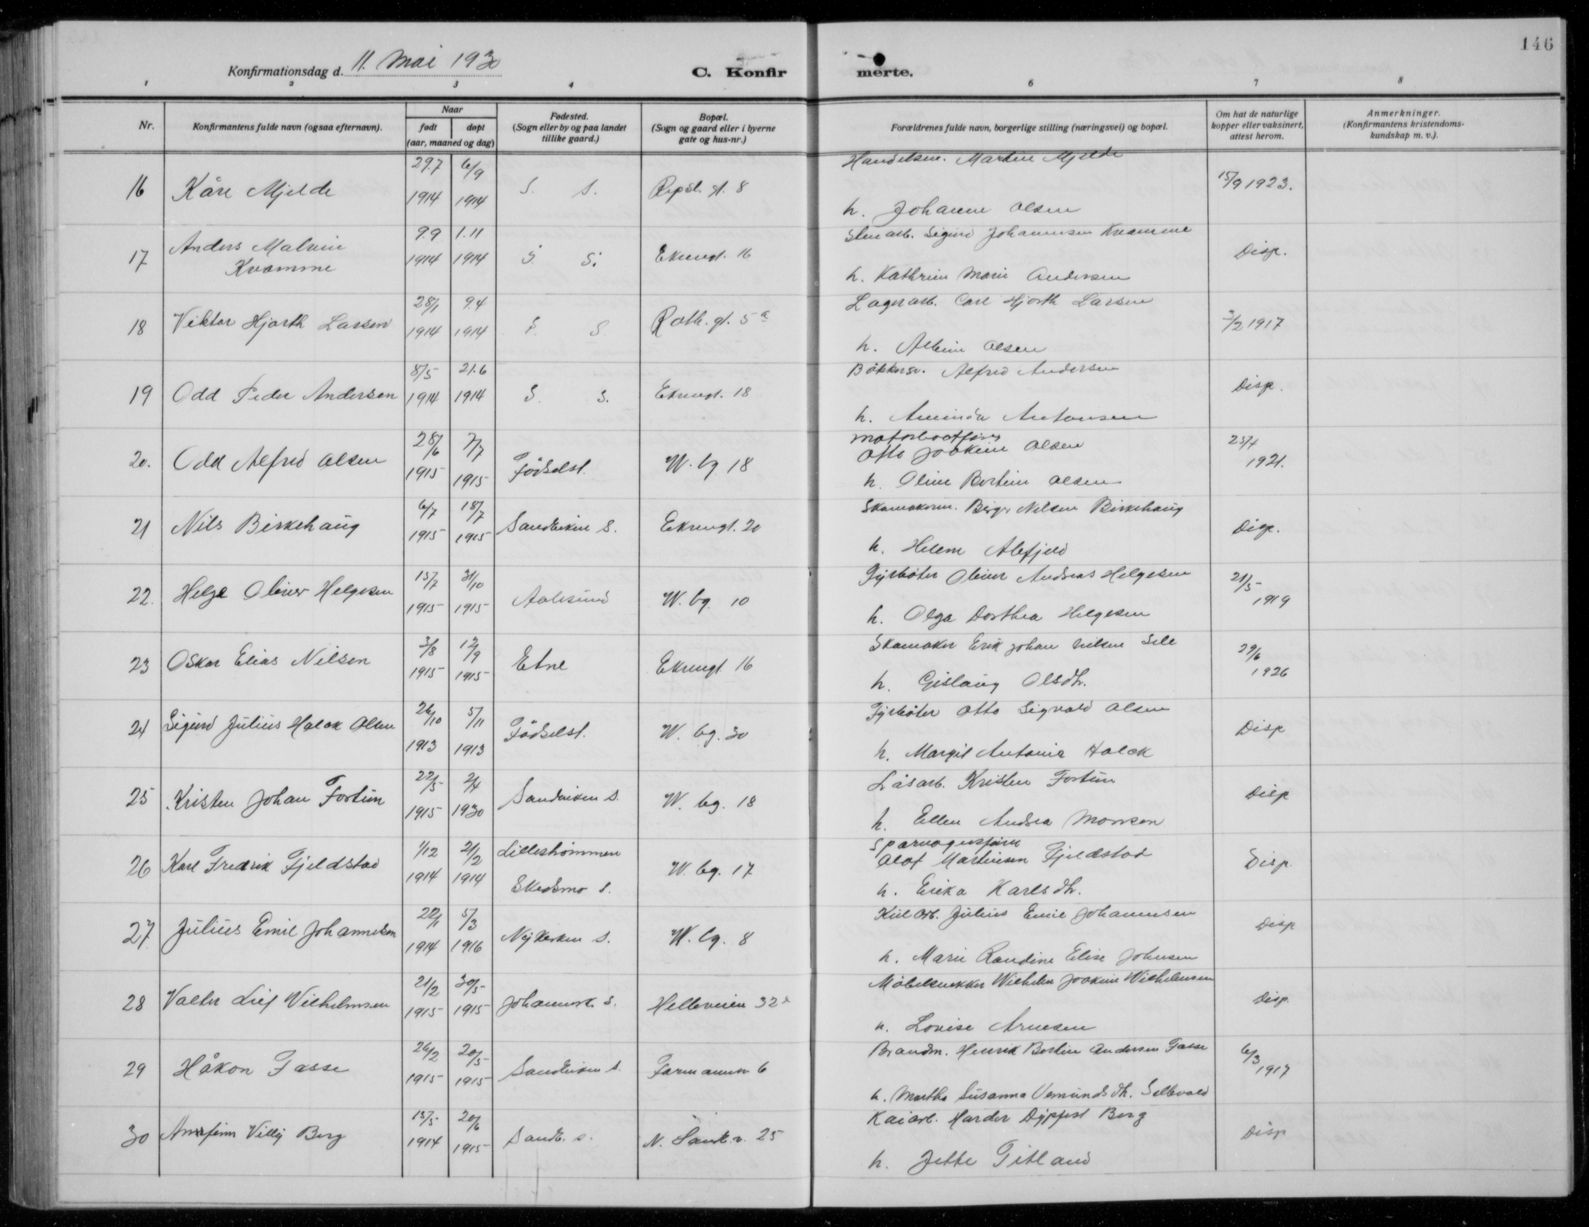 146
Konfirmationsdag d. 11. Mai 1930
C. Konfirmerte.
1 2 3 4 6 7 8
Nr.
Konfirmantens fulde navn (ogsaa efternavn).
Naar
født døpt
(aar, maaned og dag)
Fødested.
(Sogn eller by og paa landet
tillike gaard.)
Bopæl.
(Sogn og gaard eller i byerne
gate og hus-nr.)
Forældrenes fulde navn, borgerlige stilling (næringsvei) og bopæl.
Om hat de naturlige
kopper eller vaksinert,
attest herom.
Anmerkninger.
(Konfirmantens kristendoms-
kundskap m. v.).
29.7 6/9 Martin Mjelde
16 Kåre Mjelde S. S. gt. 8 15/9 1923.
1914 1914 h. Johanne Olsen
Anders Malvin 9.9 1.11 Sigurd Johannesen Kvamme
17 Kvamme 1914 1914 S S. Ekrengt. 16 Disp.
h. Kathrine Marie Andersen
28/1 9.4 Lagerarb. Carl Hjorth Larsen
18 Viktor Hjorth Larsen 1914 1914 S S Roth. gt. 5 a 3/2 1917
h. Olsen
8/5 21.6 Alfred Andersen
19 Odd Peder Andersen 1914 1914 S. S. Ekrengt. 18 Disp.
h. Antonsen
28/6 7/7 Motorbaatfører
Otto Joakim Olsen 23/4
20. Odd Alfred Olsen 1915 1915 Fødselst. W. bg 18 1921.
h. Oline Olsen
6/7 18/7 Birger Nilsen Birkehaug
21 Nils Birkehaug 1915 1915 Sandviken S. Ekrengt. 20 Disp.
h. Helene
15/7 31/10 Fyrbøter Oliver Andreas Helgesen 21/5
22. Helge Oliver Helgesen 1915 1915 Aalesund W. bg. 10 1919
h. Olga Dorthea Helgesen
3/8 12/9 Skomaker Erik Johan Nilsen 29/6
23 Oskar Elias Nilsen 1915 1915 Etne Ekrengt 16 1926
h. Gislaug Olsdt.
26/10 5/11 Fyrbøter Otto Sigvald Olsen
24 Sigurd Julius Holck Olsen 1913 1913 Fødselst. W. bg. 30 Disp
h. Margit Antonie Holck
22/5 2/4 Kristen Fortun
25 Kristen Johan Fortun 1915 1930 Sandviken S. W. bg. 18 Disp
h. Ellen Andrea Monsen
1/12 21/2 Lillestrømmen Sporvognsfører
Olaf Martinsen Fjeldstad
26 Karl Fredrik Fjeldstad 1914 1914 Skedsmo S. W. bg. 17 Disp
h. Erika Karlsdt.
22/1 5/3 Julius Emil Johannesen
27 Julius Emil Johannesen 1914 1916 Nykirken S. W. bg. 8 Disp
h. Marie Randine Elise Johnsen
21/2 30/5 Møbelsnekker Wilhelm Joakim Wilhelmsen
28 Valter Leif Vilhelmsen 1915 1915 S. Helleveien 32 Disp
h. Lovise Arnesen
26/2 20/5 Brandm. Henrik Andersen Fasse 6/3
29 Håkon Fasse 1915 1915 Sandviken S. 6 1917
h. Martha Susanna
13/5 20/6 Kaiarb. Berg
30 Villy Berg 1914 1915 Sandv. S. N. Sandv. v. 25 Disp
h. Jette Gitland